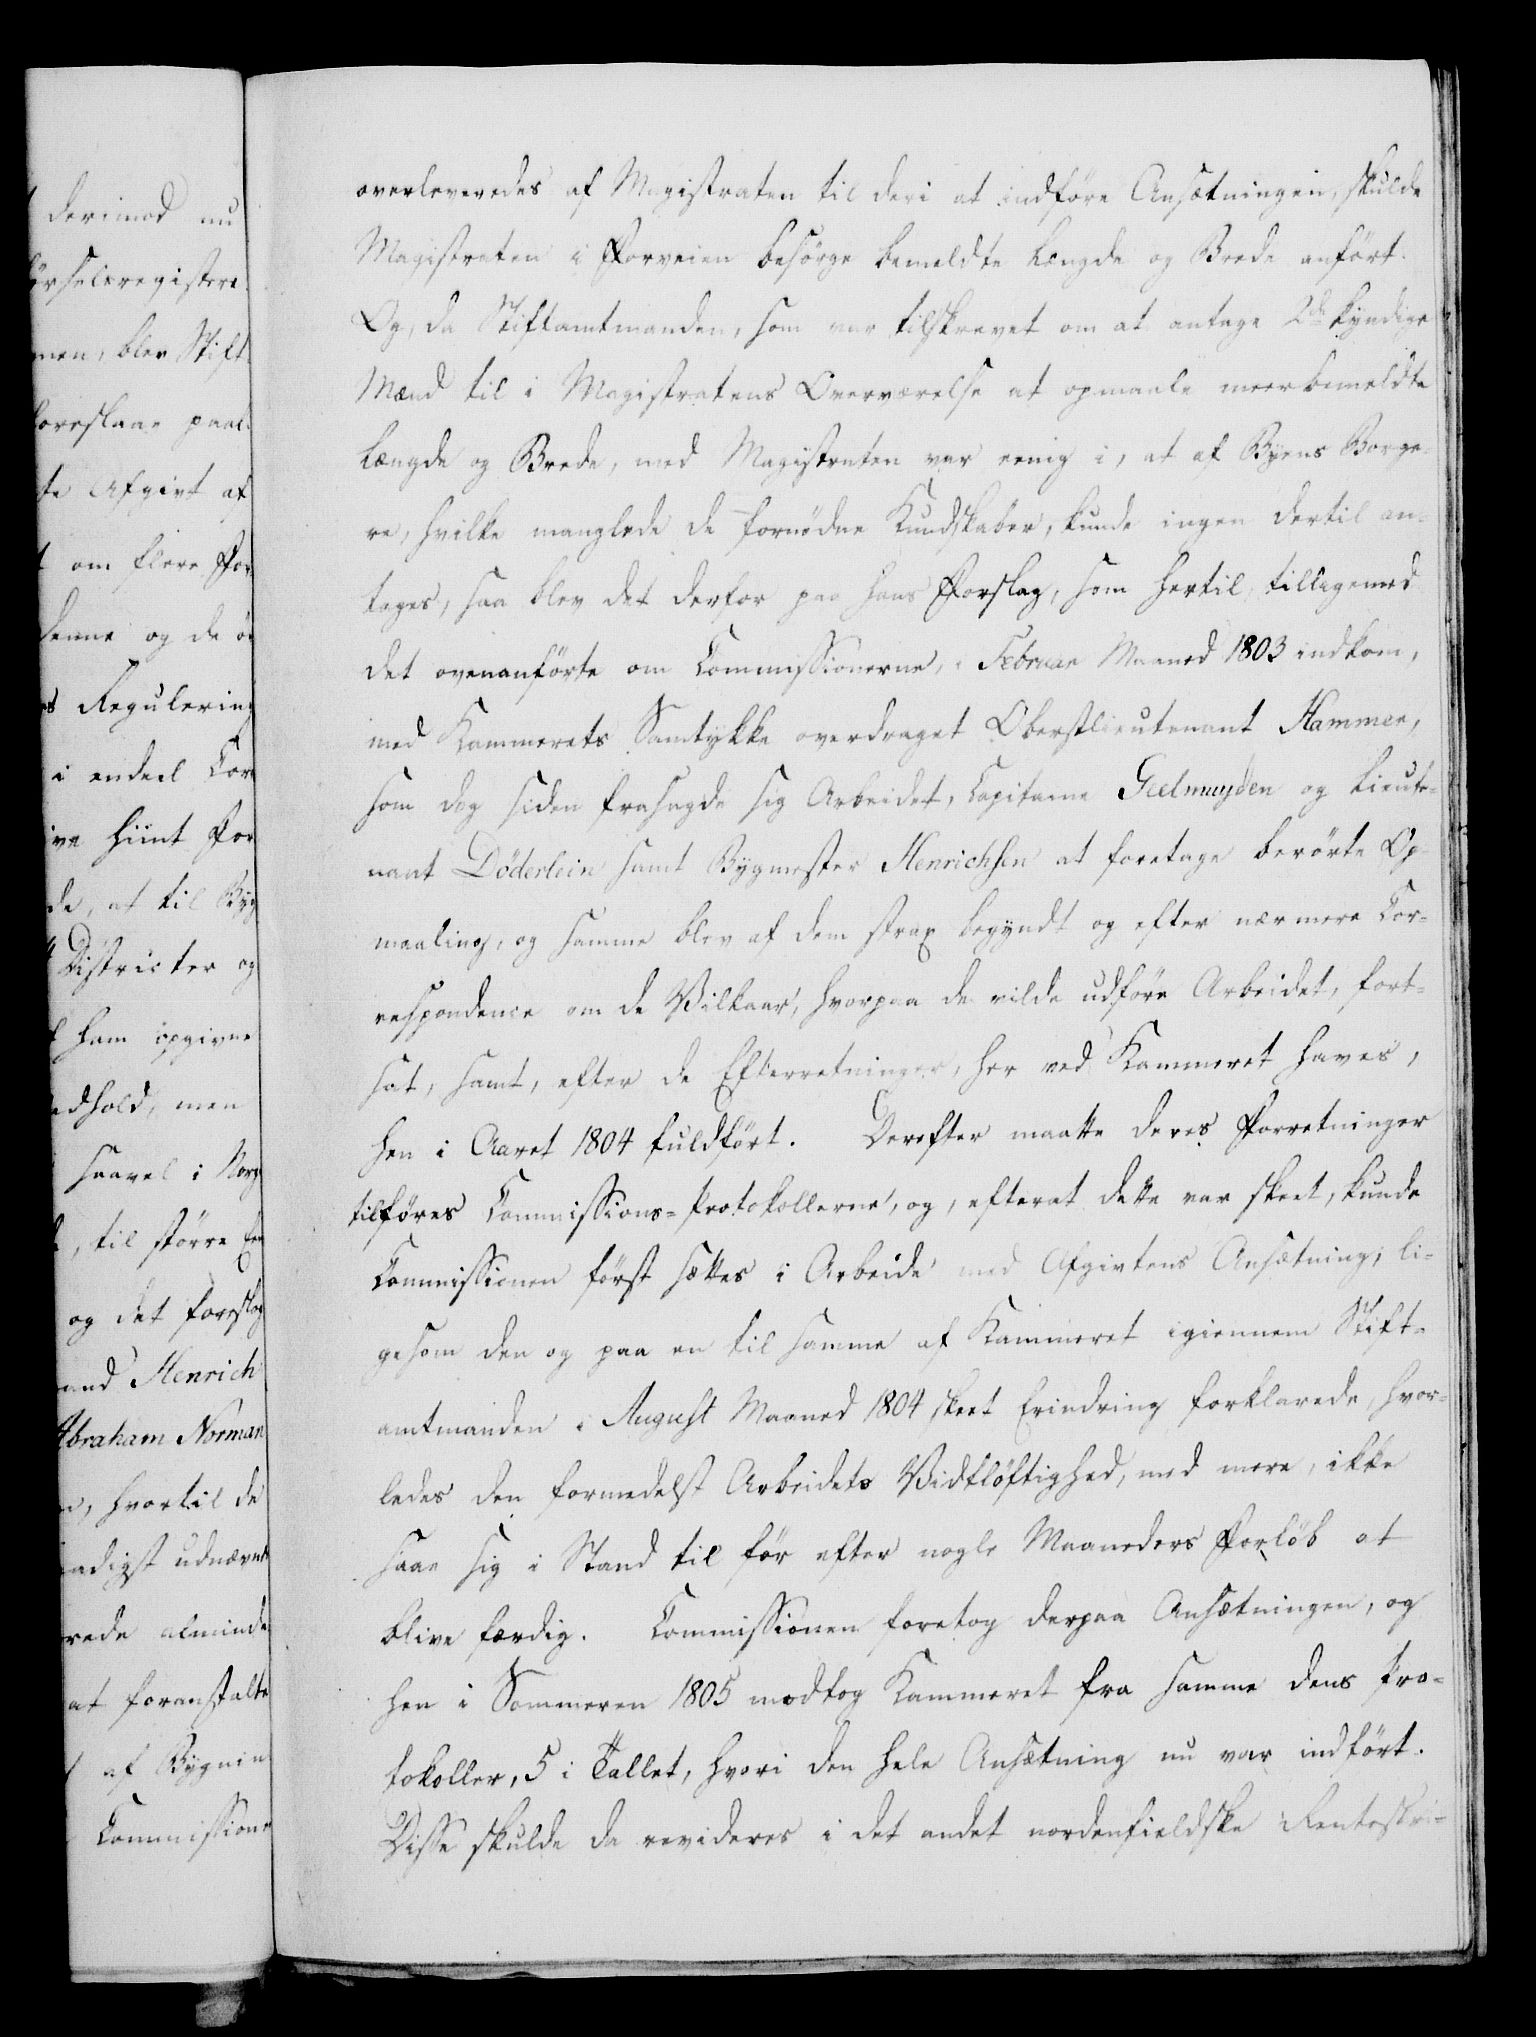 derimod nu
ørselsregistere
men, blev Stift
foreslaae paal
te Afgivt af
t om flere For
denne og de ø
s Regulering
i endeel Cor
ive hiint For
de, at til Byg
Districter og
f ham opgivne
edhold, men
saavel i Norg
, til større Een
og det foreslog
and Henrich
Abraham Norman
n, hvortil de
aadigst udnævnt
rede alminde
at foranstalte
af Bygnin
Commissione
overleveredes af Magistraten til deri at indføre Ansætningen, skulde
Magistraten i Forveien besørge bemeldte Længde og Brede anført.
Og, da Stiftamtmanden, som var tilskrevet om at antage 2de kyndige
Mænd til i Magistratens Overværelse at opmaale meerbemeldte
Længde og Brede, med Magistraten var eenig i, at af Byens Borge-
re, hvilke manglede de fornödne Kundskaber, kunde ingen dertil an-
tages, saa blev det derfor paa hans Forslag, som hertil, tilligemed
det ovenanførte om Commissionerne, i Februar Maaned 1803 indkom,
med Kammerets Samtykke overdraget Oberstlieutenant Hammer,
som dog siden frasagde sig Arbeidet, Capitaine Geelmuyden og Lieute-
nant Döderlein samt Bygmester Henrichsen at foretage berørte Op-
maaling, og samme blev af dem strax begyndt og efter nærmere Cor-
respondence om de Vilkaar, hvorpaa de vilde udføre Arbeidet, fort-
sat, samt, efter de Efterretninger, her ved Kammeret haves,
hen i Aaret 1804 fuldført. Derefter maatte deres Forretninger
tilføres Commissions-Protokollerne, og, efterat dette var skeet, kunde
Commissionen først sættes i Arbeide med Afgivtens Ansætning; li-
gesom den og paa en til samme af Kammeret igiennem Stift-
amtmanden i August Maaned 1804 skeet Erindring forklarede, hvor-
ledes den formedelst Arbeidets Vidtløftighed, med mere, ikke
saae sig i Stand til før efter nogle Maaneders Forløb at
blive færdig. Commissionen foretog derpaa Ansætningen, og
hen i Sommeren 1805 modtog Kammeret fra samme dens Pro-
tokoller, 5 i Tallet, hvori den hele Ansætning nu var indført.
Disse skulde da revideres i det andet nordenfieldske Renteskri-